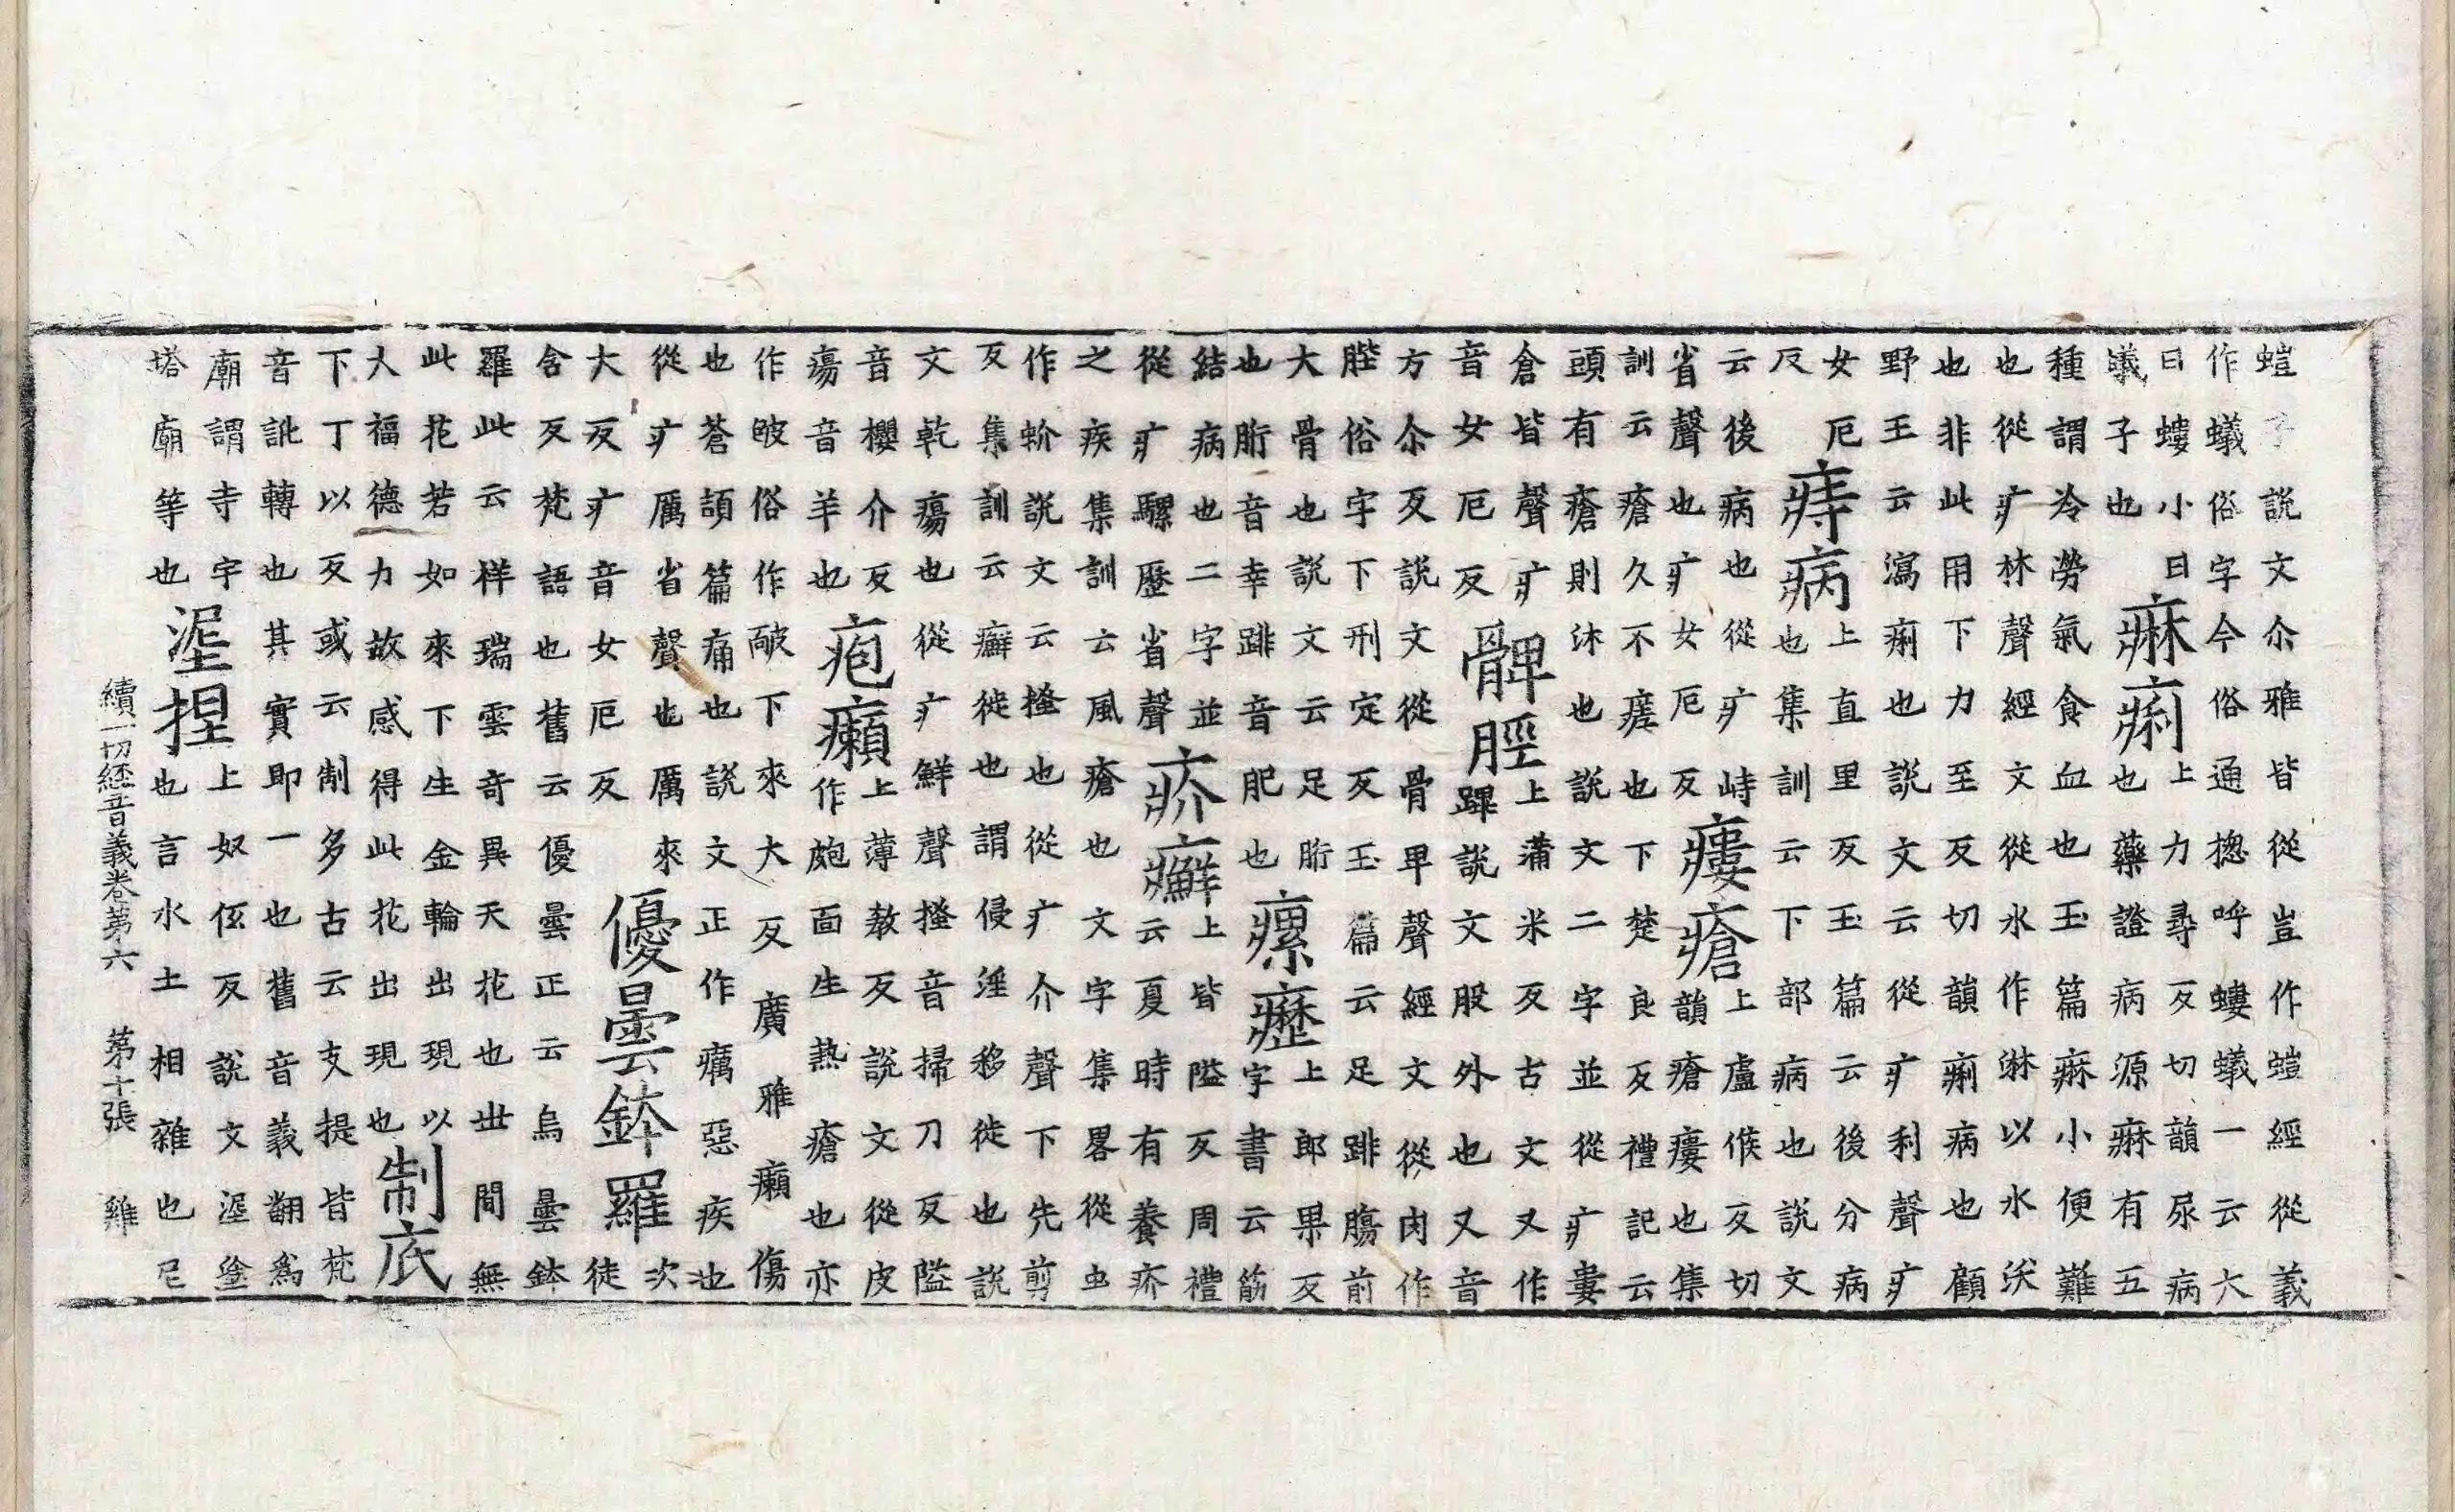 螘子說文尒雅皆從豈作螘經從義
作蟻俗字今俗通揔呼螻蟻一云六
曰螻小曰
蟻子也
痳痢
上力尋反切韻尿病
也藥證病源痳有五
種謂冷勞氣食血也玉篇痳小便難
也從疒林聲經文從水作淋以水沃
也非此用下力至反切韻痢病也顧
野王云瀉痢也說文云從疒利聲疒
女厄
反
痔病
上直里反玉篇云後分病
也集訓云下部病也說文
云後病也從疒峙
省聲也疒女厄反
瘻瘡
上盧候反切
韻瘡瘻也集
訓云瘡久不瘥也下楚良反禮記云
頭有瘡則沐也說文二字並從疒婁
倉皆聲疒
音女厄反
髀脛
上蒲米反古文又作
䠋說文股外也又音
方尒反說文從骨卑聲經文從肉作
䏶俗字下刑定反玉篇云足跰膓前
大骨也說文云足胻
也胻音幸跰音肥也
瘰癧
上郎果反
字書云筋
結病也二字並
從疒騾歷省聲
疥癬
上皆隘反周禮
云夏時有養疥
之疾集訓云風瘡也文字集畧從虫
作蚧說文云搔也從疒介聲下先剪
反集訓云癬徙也謂侵淫移徙也說
文乾瘍也從疒鮮聲搔音掃刀反隘
音櫻介反
瘍音羊也
疱癩
上薄教反說文從皮
作皰面生熱瘡也亦
作䩗俗作作䶌下來大反廣雅癩傷
也蒼頡篇痛也說文正作癘惡疾也
從疒厲省聲也厲來
大反疒音女厄反
優曇鉢羅
次
徒
含反梵語也舊云優曇正云烏曇鉢
羅此云样瑞雲奇異天花也世間無
此花若如來下生金輪出現以
大福德力故感得此花出現也
制底
下丁以反或云制多古云支提皆梵
音訛轉也其實即一也舊音義翻爲
廟謂寺宇
塔廟等也
涅捏
上奴伭反說文涅塗
也言水土相雜也尼
續一切經音義卷第六 第十張 雞